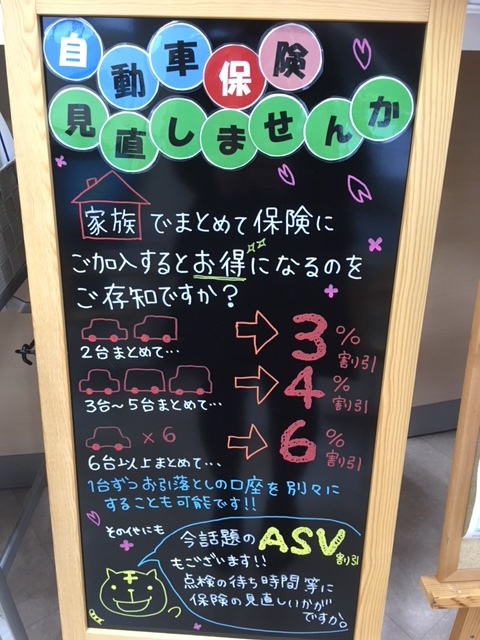 自動車保険
見直しませんか
家族でまとめて保険に
ご加入するとお得になるのを
ご存知ですか？
2台まとめて… 3%割引
3台～5台まとめて… 4%割引
× 6
6台以上まとめて… 6%割引
1台ずつお引落としの口座を別々に
することも可能です!!
その他にも
今話題のASV割引
もございます!!
点検の待ち時間等に
保険の見直しいかが
ですか。